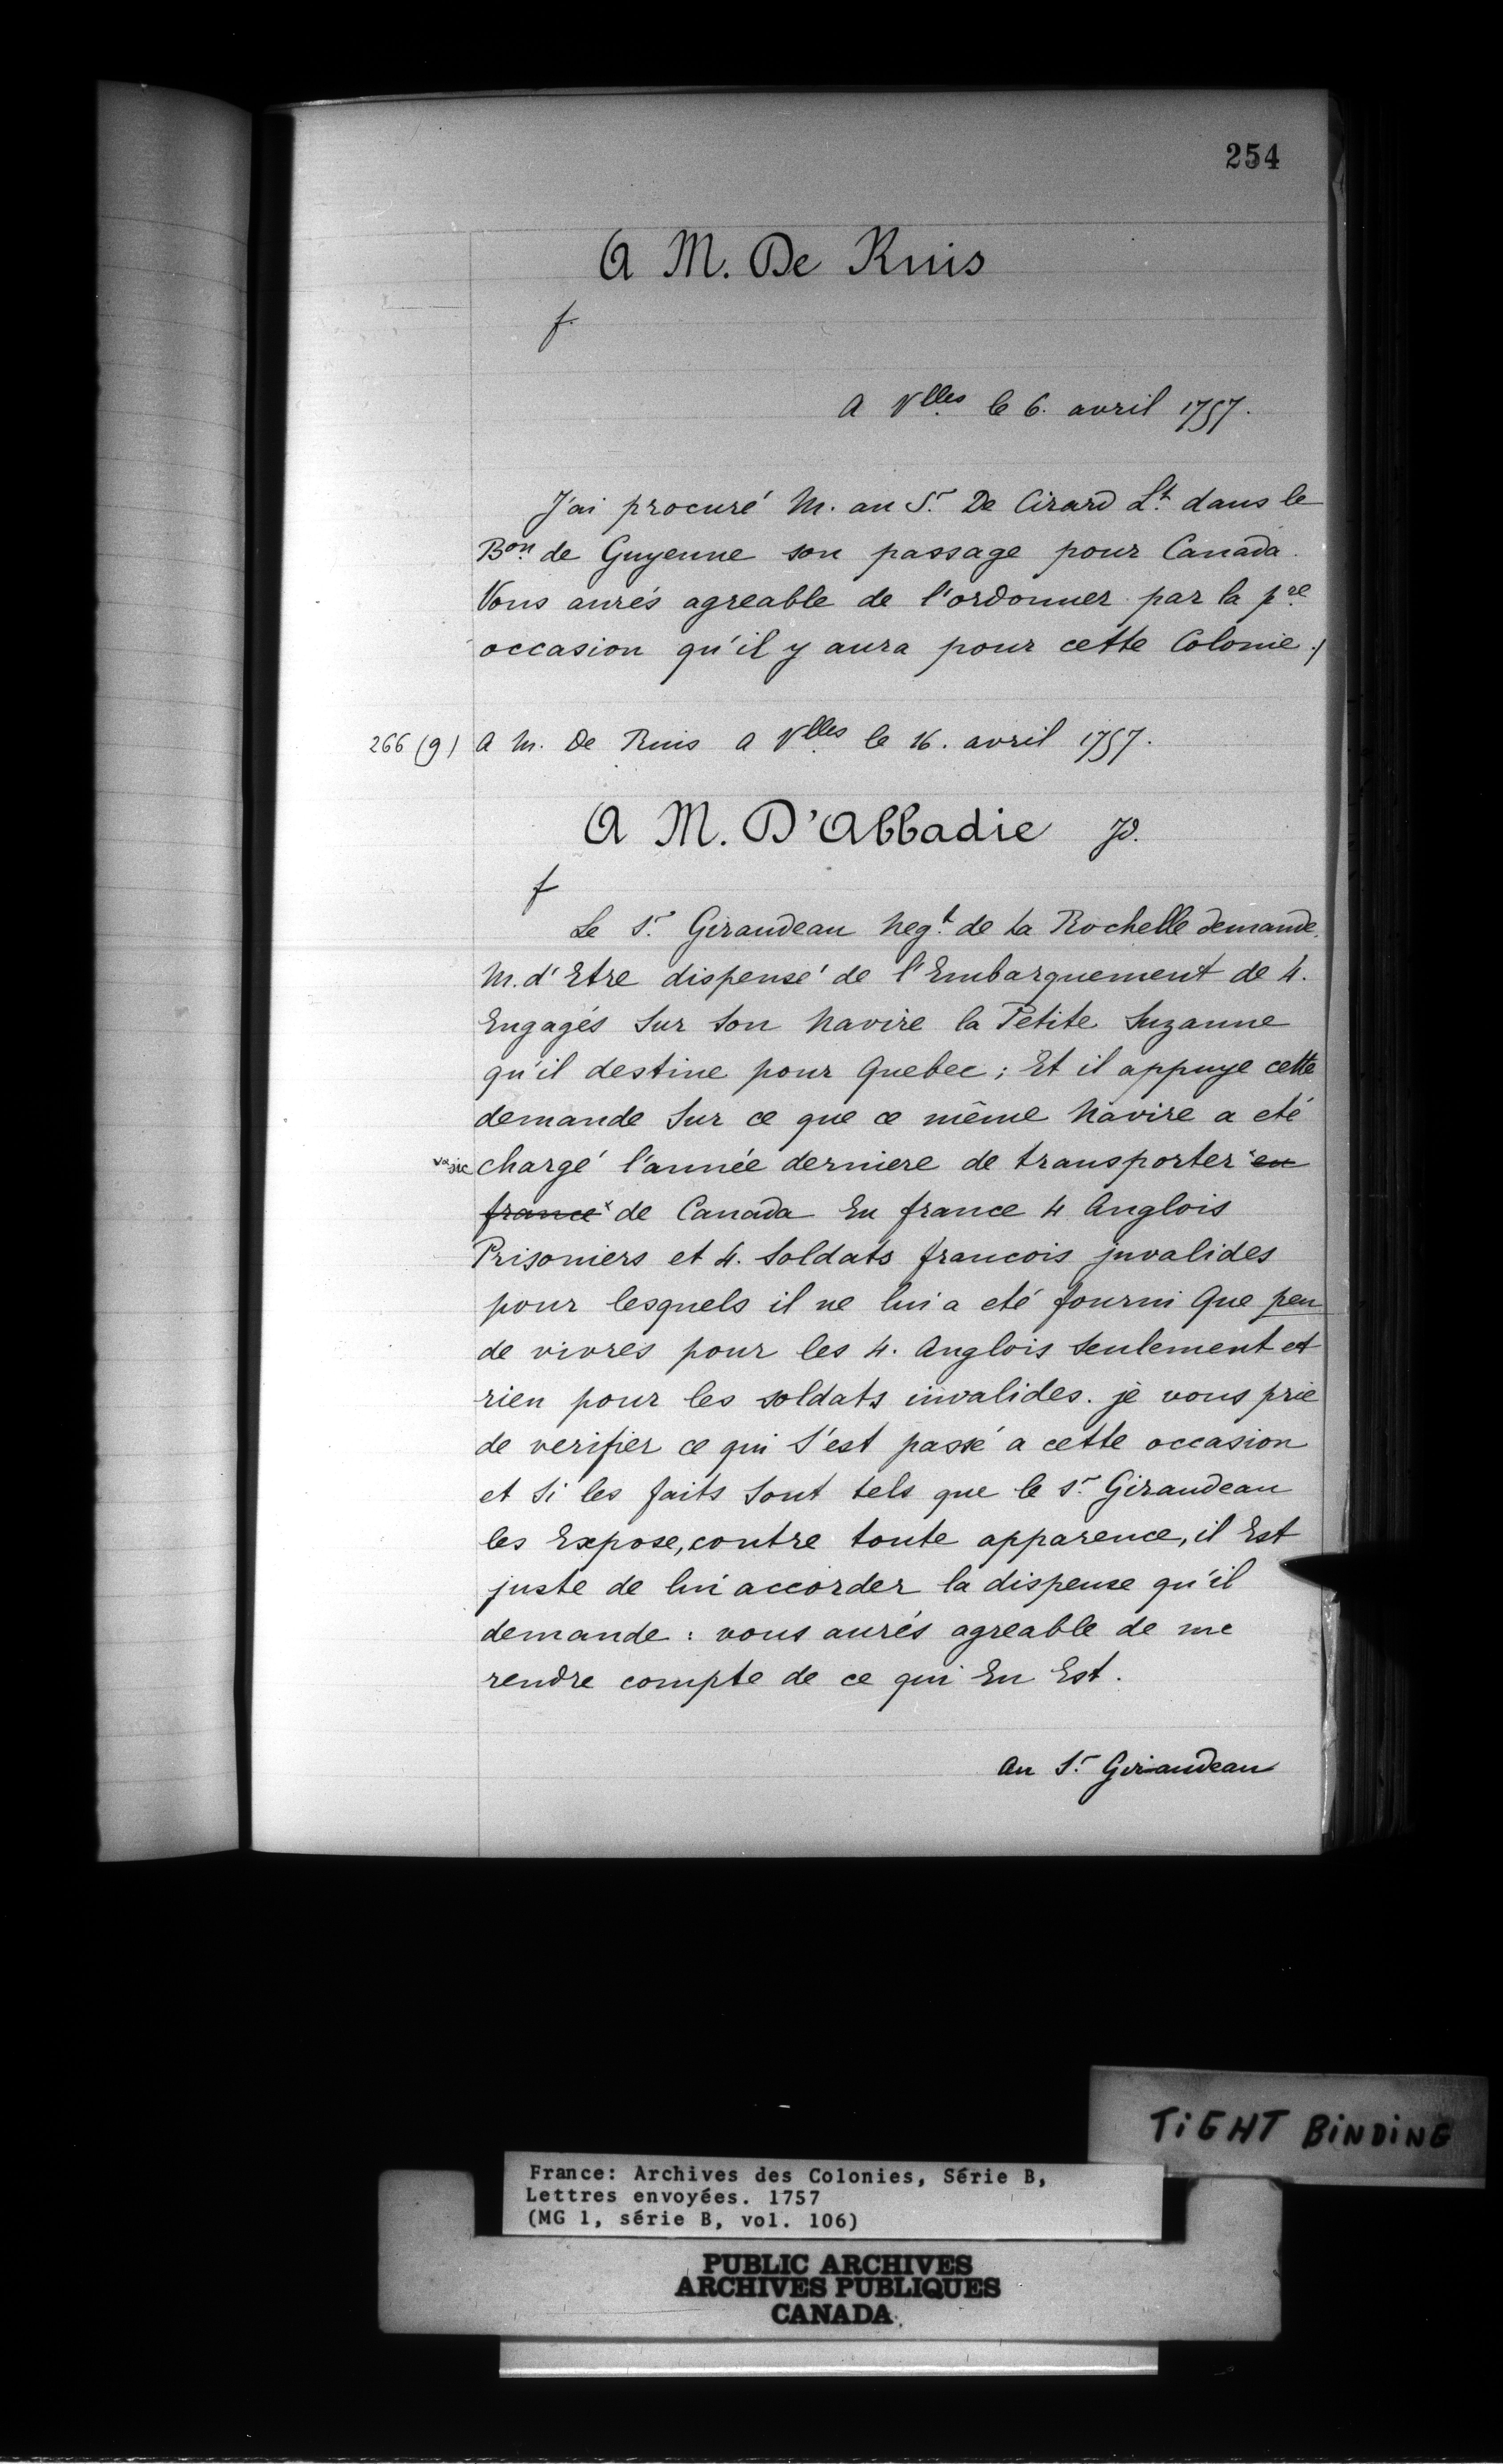 254
A M. De Ruis
f.
A Vlles le 6. avril 1757.
J'ai procuré M. au Sr. De Cirard Lt. dans le
Bon. de Guyenne son passage pour Canada.
Vous aurés agreable de l'ordonner par la pre.
occasion qu'il y aura pour cette Colonie ./
266 (9) A M. De Ruis a Vlles le 16. avril 1757.
A M. D'Abbadie Jd.
f
Le Sr. Giraudeau Negt. de La Rochelle demande,
M. d'Etre dispensé de l'Embarquement de 4.
Engagés Sur Son Navire la Petite Suzanne
qu'il destine pour Quebec ; Et il appuye cette
demande Sur ce que ce même Navire a eté
sic chargé l'année derniere de transporter x en
france x de Canada En france 4 Anglois
Prisoniers et 4. Soldats francois jnvalides
pour lesquels il ne lui a eté fourni Que peu
de vivres pour les 4. Anglois Seulement et
rien pour les soldats invalides. je vous prie
de verifier ce qui S'est passé a cette occasion
et Si les faits Sont tels que le Sr. Giraudeau
les Expose, contre toute apparence, il Est
juste de lui accorder la dispense qu'il
demande : vous aurés agreable de me
rendre compte de ce qui En Est.
Au Sr. Giraudeau
TIGHT BINDING
France: Archives des Colonies, Série B,
Lettres envoyées. 1757
(MG 1, série B, vol. 106)
PUBLIC ARCHIVES
ARCHIVES PUBLIQUES
CANADA